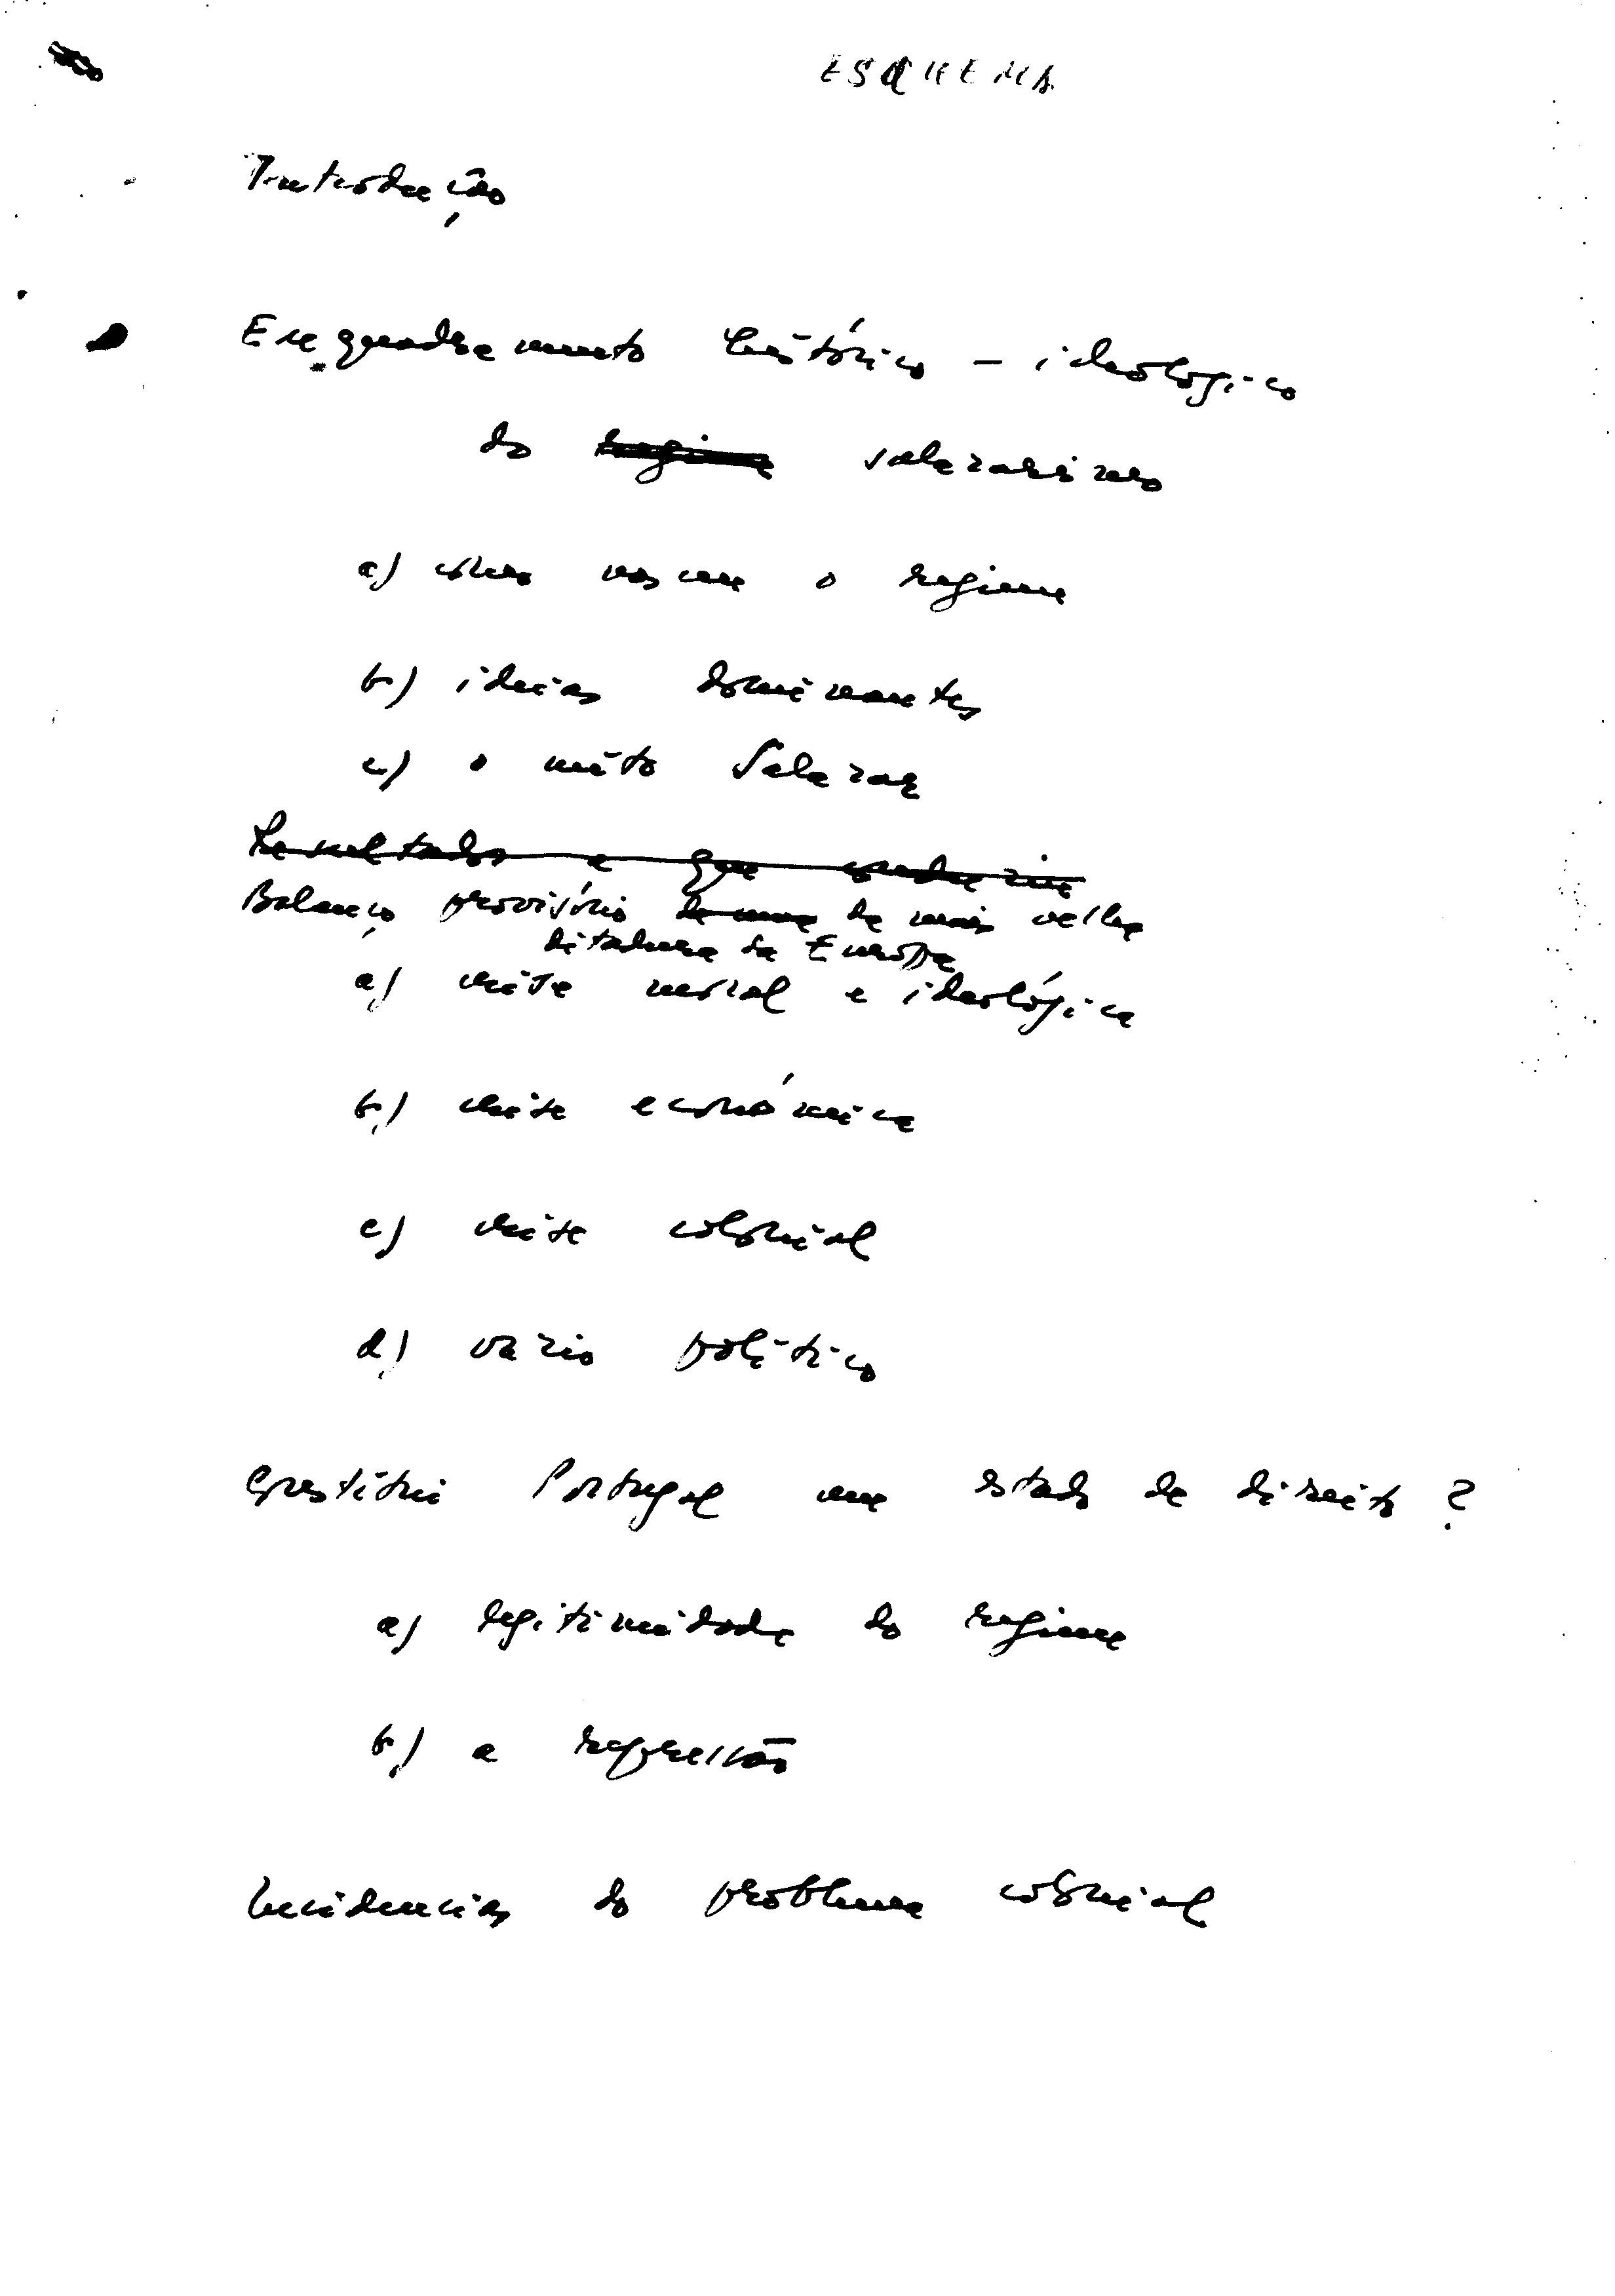 ESQUEMA
Introdução
Enquadramento histórico - ideológico
do regime salazarismo
a) como nasceu o regime
b) ideias dominantes
c) o mito Salazar
Resultados a que conduziu
Balanço provisório de uma da mais velha
ditadura da Europa
a) crise moral e ideológica
b) crise económica
c) crise colonial
d) vazio político
Constitui Portugal um estado de direito?
a) legitimidade do regime
b) a repressão
Incidencias do problema colonial